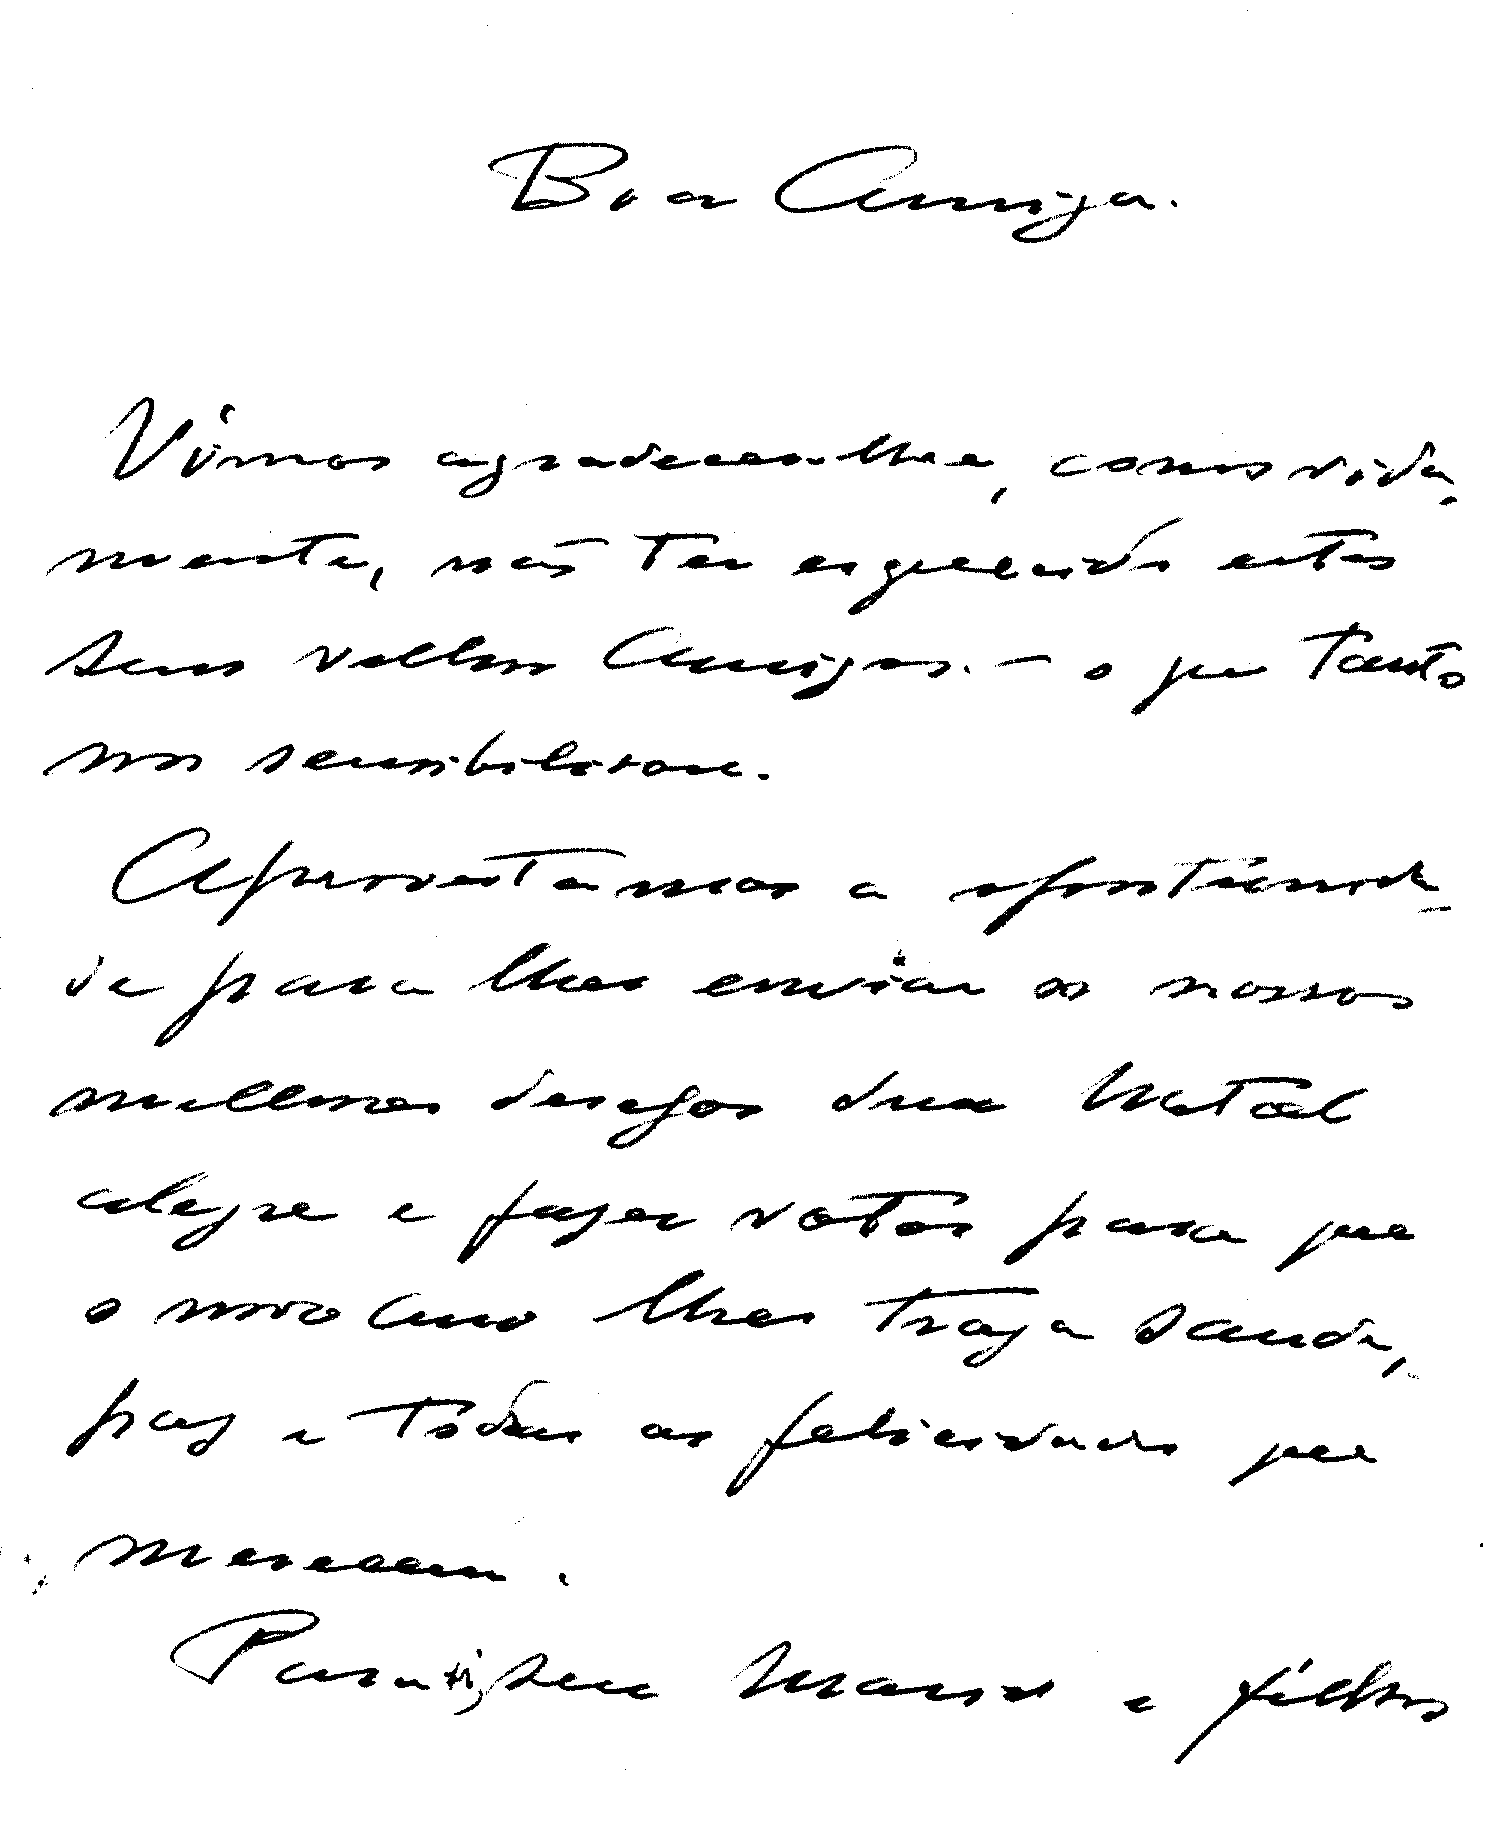 Boa Amiga.
Vimos agradecer-lhe, comovida,
mente, não ter esquecido estes
seus velhos Amigos. — o que tanto
nos sensibilizou.
Aproveitamos a oportunida-
de para lhes enviar os nossos
melhores desejos dum Natal
alegre e fazer votos para que
o novo ano lhes traga saude,
paz e todas as felicidades que
merecem.
Para ti, seu Marido e filhos